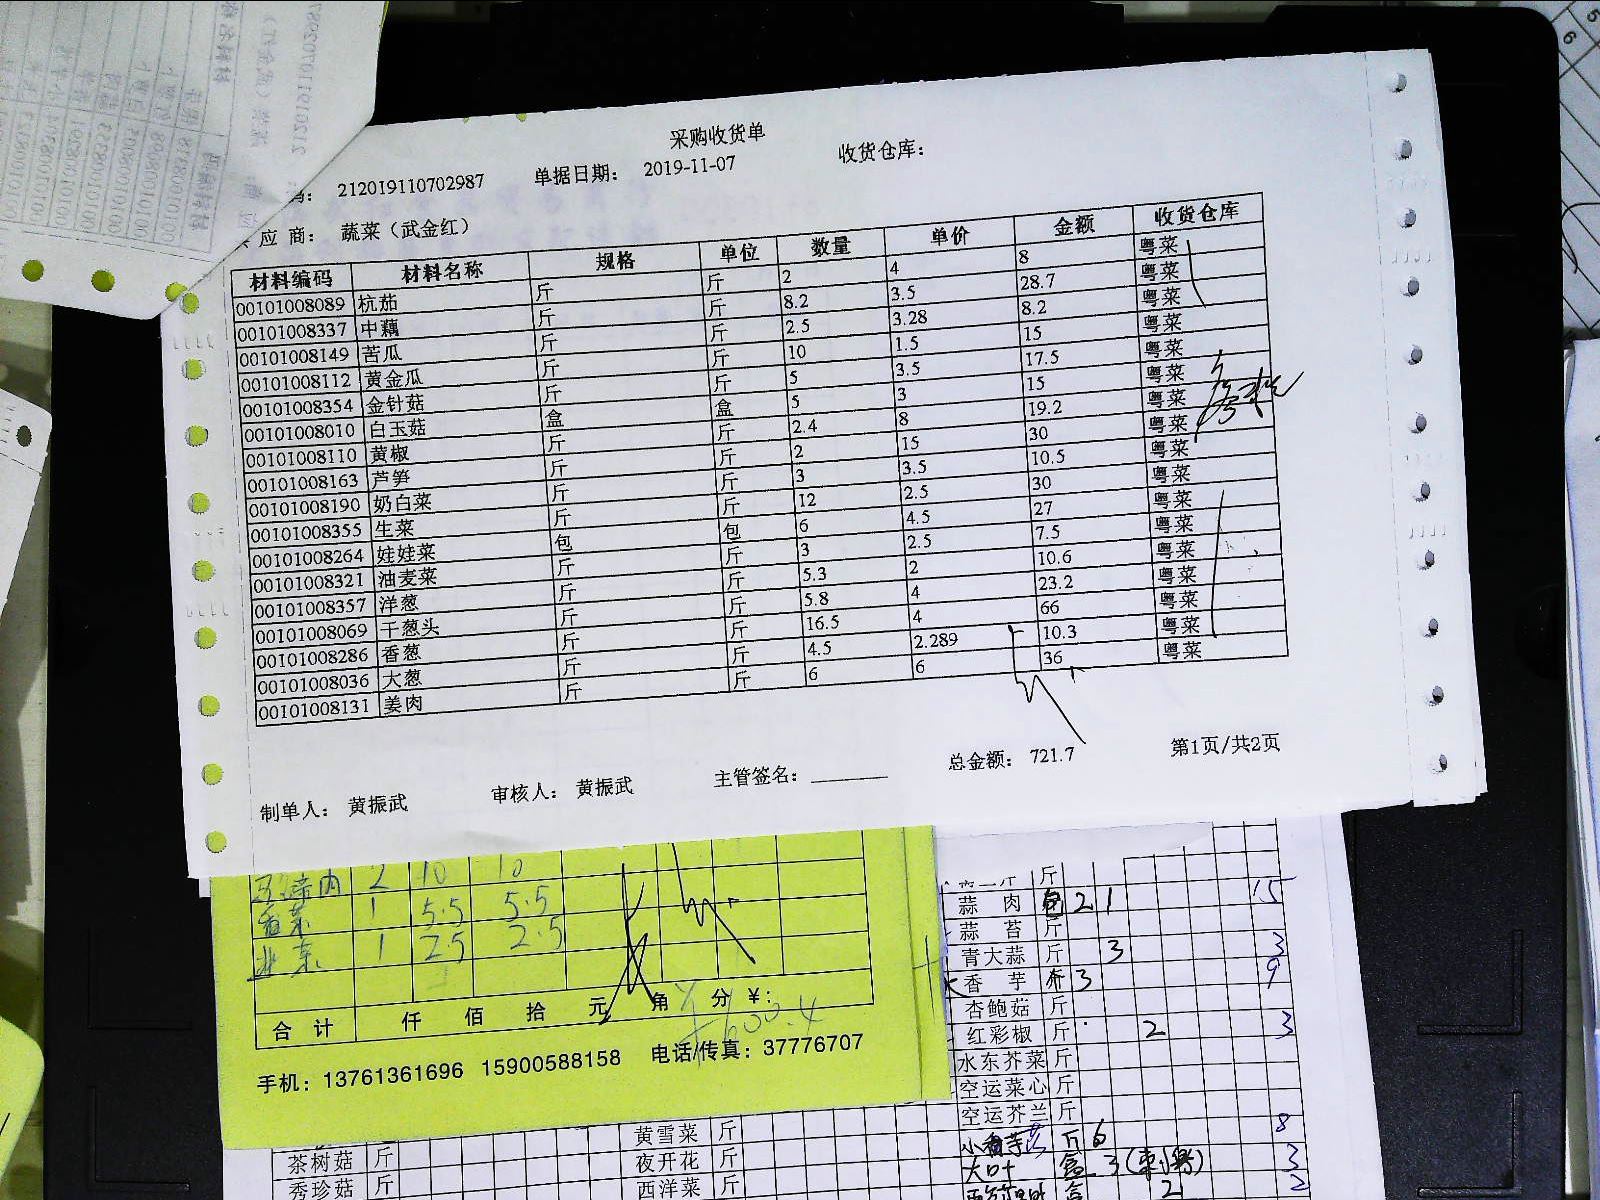 采购收货单
码： 212019110702987 单据日期： 2019-11-07 收货仓库：
应 商： 蔬菜（武金红）
材料编码 材料名称 规格 单位 数量 单价 金额 收货仓库
00101008089 杭茄 斤 斤 2 4 8 粤菜
00101008337 中藕 斤 斤 8.2 3.5 28.7 粤菜
00101008149 苦瓜 斤 斤 2.5 3.28 8.2 粤菜
00101008112 黄金瓜 斤 斤 10 1.5 15 粤菜
00101008354 金针菇 斤 斤 5 3.5 17.5 粤菜
00101008010 白玉菇 盒 盒 5 3 15 粤菜
00101008110 黄椒 斤 斤 2.4 8 19.2 粤菜
00101008163 芦笋 斤 斤 2 15 30 粤菜
00101008190 奶白菜 斤 斤 3 3.5 10.5 粤菜
00101008355 生菜 斤 斤 12 2.5 30 粤菜
00101008264 娃娃菜 包 包 6 4.5 27 粤菜
00101008321 油麦菜 斤 斤 3 2.5 7.5 粤菜
00101008357 洋葱 斤 斤 5.3 2 10.6 粤菜
00101008069 干葱头 斤 斤 5.8 4 23.2 粤菜
00101008286 香葱 斤 斤 16.5 4 66 粤菜
00101008036 大葱 斤 斤 4.5 2.289 10.3 粤菜
00101008131 姜肉 斤 斤 6 6 36 粤菜
制单人： 黄振武 审核人： 黄振武 主管签名： 总金额： 721.7 第1页/共2页
2 10 10
香菜 1 5.5 5.5
韭菜 1 2.5 2.5
合 计 仟 佰 拾 元 角 分 ¥：
600.4
手机：13761361696 15900588158 电话/传真：37776707
斤
蒜 肉 包 2 1 15
蒜 苔 斤
青大蒜 斤 3 3
香 芋 斤 3 9
杏鲍菇 斤
红彩椒 斤 2 3
水东芥菜 斤
空运菜心 斤
空运芥兰 斤
斤 6 8
大叶 盒 3 3
盒 2 2
黄雪菜 斤
茶树菇 斤 夜开花 斤
秀珍菇 斤 西洋菜 斤